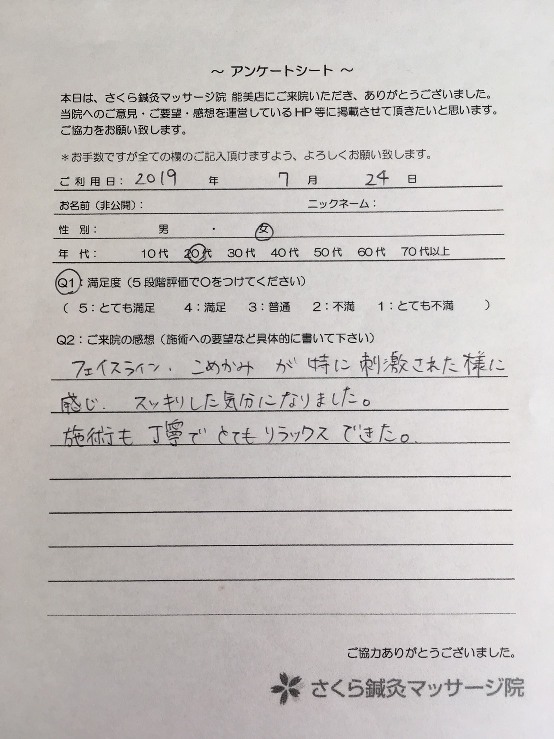 ～ アンケートシート ～
本日は、さくら鍼灸マッサージ院 能美店にご来院いただき、ありがとうございました。
当院へのご意見・ご要望・感想を運営しているHP等に掲載させて頂きたいと思います。
ご協力をお願い致します。
＊お手数ですが全ての欄のご記入頂けますよう、よろしくお願い致します。
ご利用日： 2019 年 7 月 24 日
お名前（非公開）： ニックネーム：
性 別： 男 ・ 女
年 代： 10代 20代 30代 40代 50代 60代 70代以上
Q1：満足度（5段階評価で〇をつけてください）
（ 5：とても満足 4：満足 3：普通 2：不満 1：とても不満 ）
Q2：ご来院の感想（施術への要望など具体的に書いて下さい）
フェイスライン、こめかみ が 特に 刺激された様に
感じ、スッキリした気分になりました。
施術も 丁寧で とても リラックス できた。
ご協力ありがとうございました。
さくら鍼灸マッサージ院